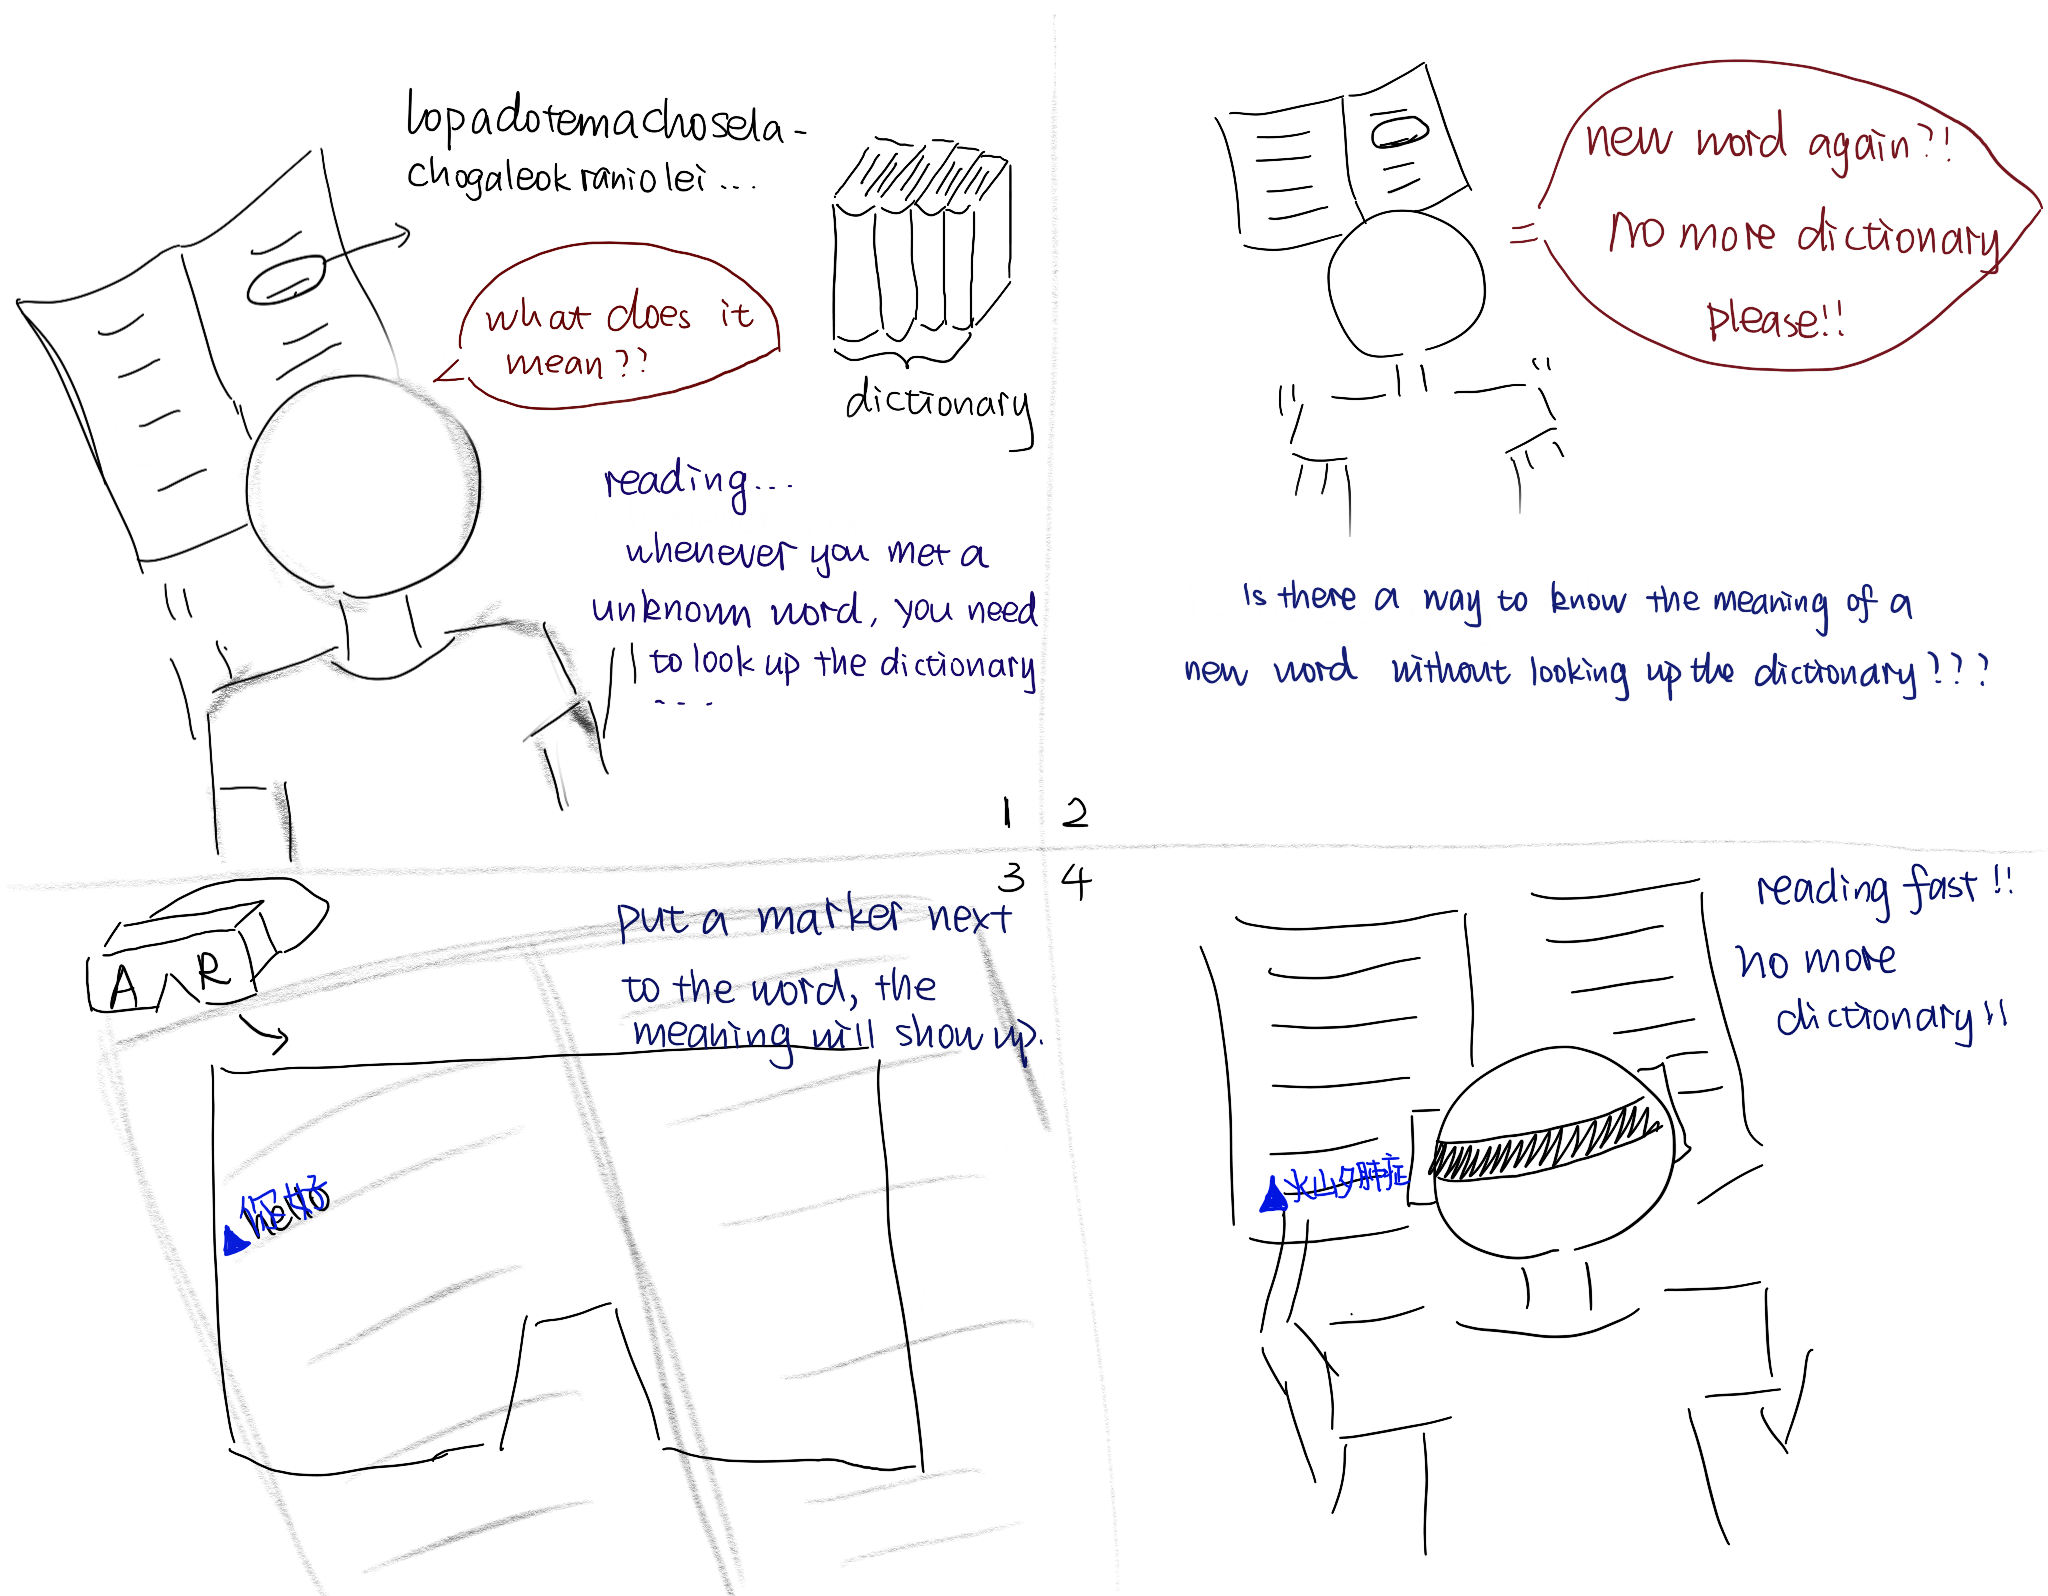 lopadotemachosela-
chogaleokraniolei...
what does it
mean??
dictionary
reading...
whenever you met a
unknown word, you need
to look up the dictionary
....
1
new word again?!
no more dictionary
please!!
Is there a way to know the meaning of a
new word without looking up the dictionary???
2
3
AR
put a marker next
to the word, the
meaning will show up.
你好
hello
4
reading fast!!
no more
dictionary!!
火山夕肺症